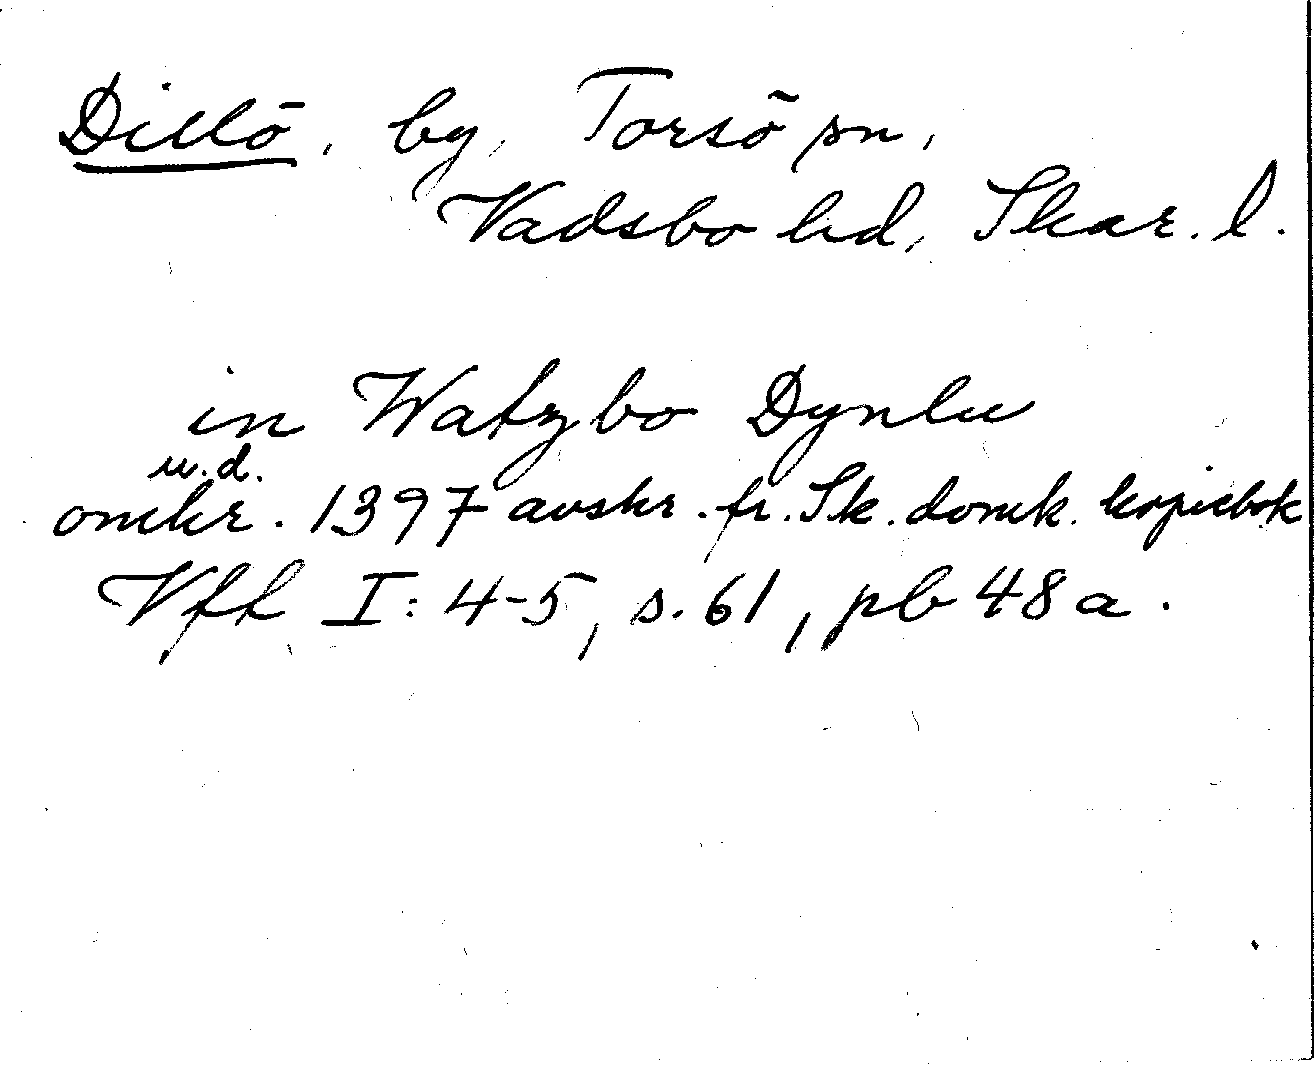 Dillö, by, Torsö sn,
Vadsbo hd, Skar. l.
in Watzbo Dynlu
u.d.
omkr. 1397 avskr. fr. Sk. domk. kopiebok
Vfh I: 4-5, s. 61, pb 48 a.